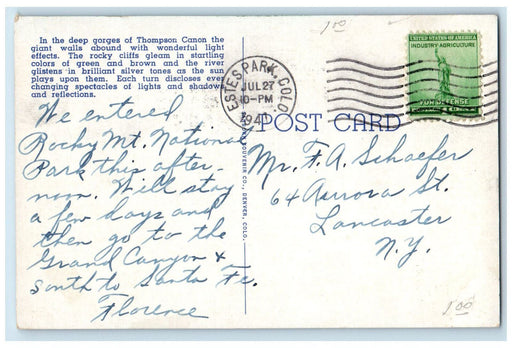 In the deep gorges of Thompson Canon the
giant walls abound with wonderful light
effects. The rocky cliffs gleam in startling
colors of green and brown and the river
glistens in brilliant silver tones as the sun
plays upon them. Each turn discloses ever
changing spectacles of lights and shadows
and reflections.
We entered
Rocky Mt. National
Park this after-
noon. Will stay
a few days and
then go to the
Grand Canyon &
south to Santa Fe.
Florence
SOUVENIR CO., DENVER, COLO.
1 00
ESTES PARK, COLO.
JUL 27
10-PM
1941
UNITED STATES OF AMERICA
INDUSTRY-AGRICULTURE
FOR DEFENSE
POST CARD
Mr. F. A. Schaefer
64 Aurora St.
Lancaster
N.Y.
1 00